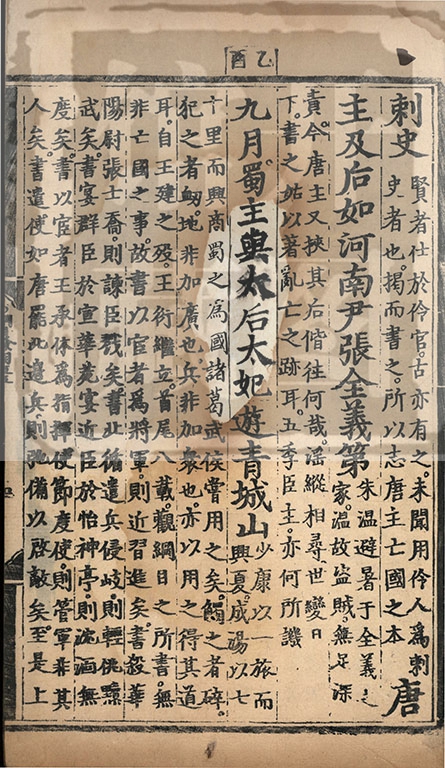 乙酉
刺史
賢者仕於伶官古亦有之未聞用伶人爲刺
史者也揭而書之所以志唐主亡國之本
唐
主及后如河南尹張全義第
朱温避暑于全義之
家温故盜賊無足深
責今唐主又挾其后偕往何哉淫縱相尋世變日
下書之姑以著亂亡之跡耳五季臣主亦何所譏
九月蜀主與太后太妃遊青城山
少康以一旅而
興夏成湯以七
十里而興商蜀之爲國諸葛武侯嘗用之矣觸之者碎
犯之者衂地非加廣也兵非加衆也亦以用之得其道
耳自王建之歿王衍繼立首尾八載觀綱目之所書無
非亡國之事故書以宦者爲將軍則近習進矣書殺華
陽尉張士喬則諫臣戮矣書北循遣兵侵岐則輕佻黷
武矣書宴群臣於宣華苑宴近臣於怡神亭則沈湎無
度矣書以宦者王承休爲指揮使節度使則管軍非其
人矣書遣使如唐罷北邊兵則弛備以啓敵矣至是上